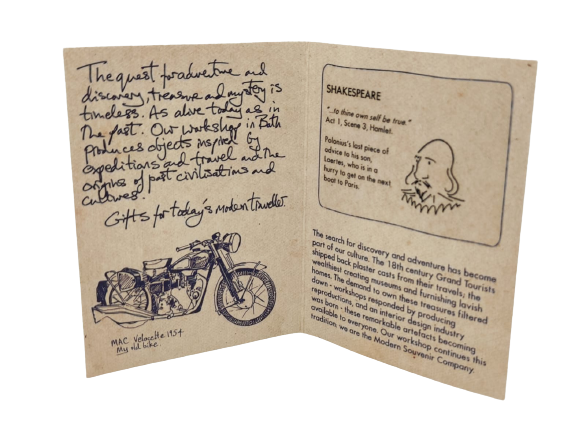 The quest for adventure and
discovery, treasure and mystery is
timeless. As alive today as in
the past. Our workshop in Bath
produces objects inspired by
expeditions and travel and the
origins of past civilisations and
cultures.
Gifts for today's modern traveller.
MAC Velocette 1954
My old bike.
SHAKESPEARE
"...to thine own self be true."
Act 1, Scene 3, Hamlet.
Polonius's last piece of
advice to his son,
Laertes, who is in a
hurry to get on the next
boat to Paris.
The search for discovery and adventure has become
part of our culture. The 18th century Grand Tourists
shipped back plaster casts from their travels; the
wealthiest creating museums and furnishing lavish
homes. The demand to own these treasures filtered
down - workshops responded by producing
reproductions, and an interior design industry
was born - these remarkable artefacts becoming
available to everyone. Our workshop continues this
tradition; we are the Modern Souvenir Company.